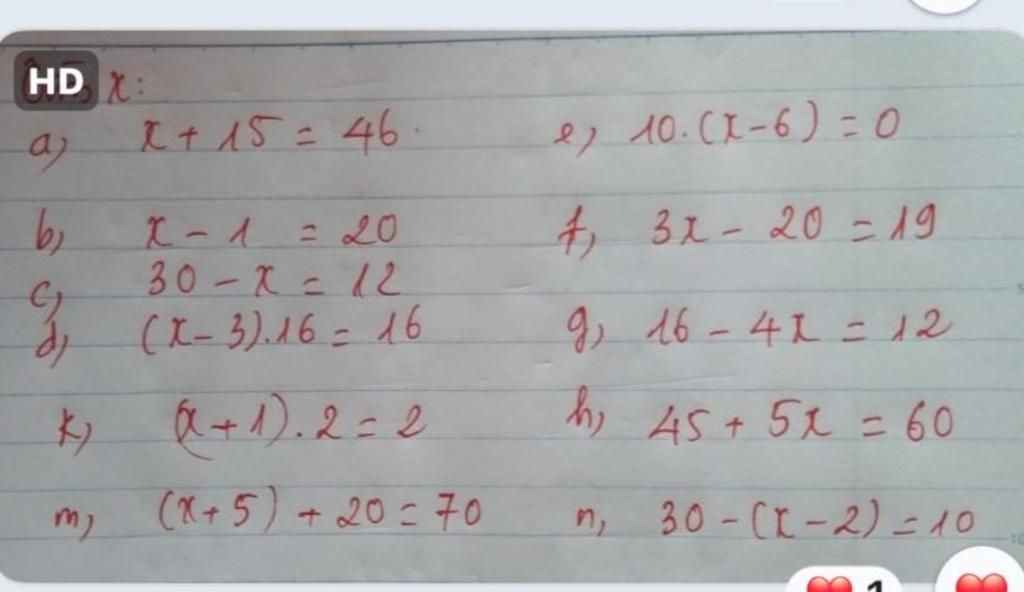 HD
x:
a) x + 15 = 46
b) x - 1 = 20
c) 30 - x = 12
d) (x - 3).16 = 16
k) (x + 1).2 = 2
m) (x + 5) + 20 = 70
e) 10.(x - 6) = 0
f) 3x - 20 = 19
g) 16 - 4x = 12
h) 45 + 5x = 60
n) 30 - (x - 2) = 10
1